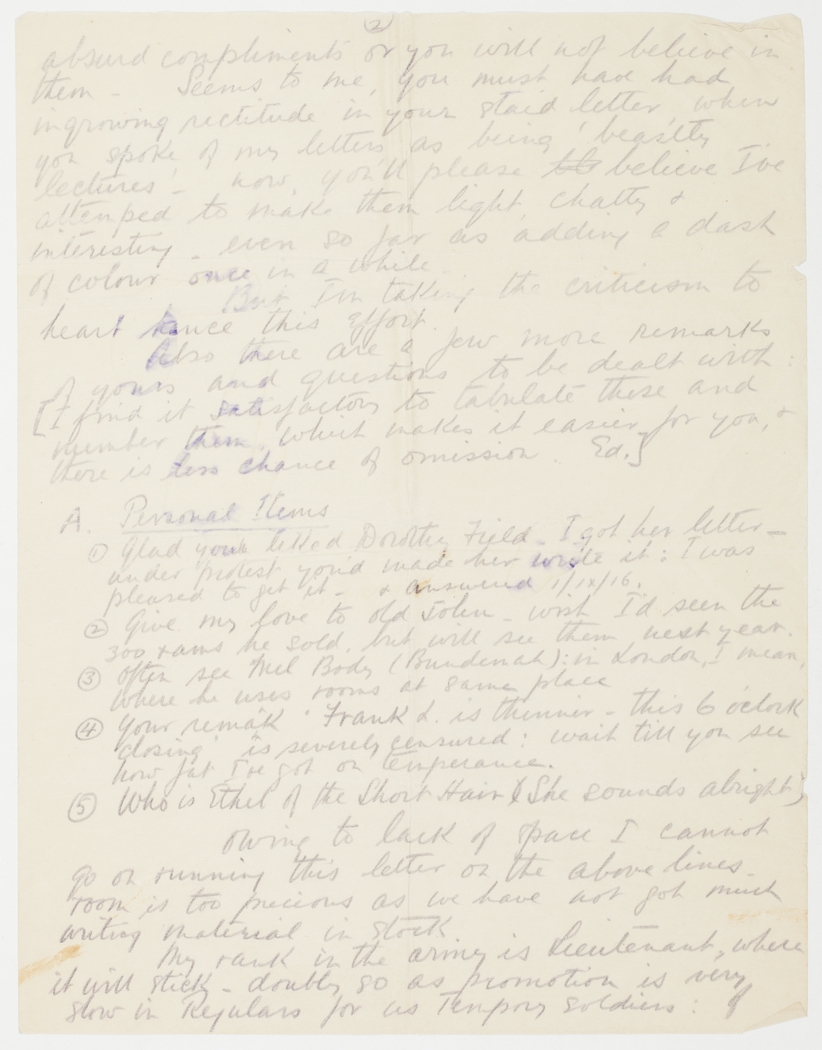 (2)
absurd compliments or you will not believe in
them - Seems to me, you must have had
ingrowing rectitude in your staid letter, when
you spoke of my letters as being 'beastly
lectures' - now, you'll please believe I've
attemped to make them light, chatty &
interesting - even so far as adding a dash
of colour once in a while -
But I'm taking the criticism to
heart hence this effort.
Also there are a few more remarks
of yours and questions to be dealt with:
[I find it satisfactory to tabulate these and
number them, which makes it easier for you, &
there is less chance of omission. Ed.]
A. Personal Items
① Glad you Dorothy Field - I got her letter -
under protest you'd made her write it: I was
pleased to get it - & answered 1/1x/16.
② Give my love to old John - wish I'd seen the
300 rams he sold, but will see them next year.
③ often see Mel Body (Bundemah): in London, I mean,
where he uses rooms at same place
④ your remark 'Frank L. is thinner - this 6 o'clock
closing' is severely censured: wait till you see
how fat I've got on temperance.
⑤ Who is Ethel of the Short Hair? (She sounds alright)
owing to lack of space I cannot
go on running this letter on the above lines -
room is too precious as we have not got much
writing material in stock
My rank in the army is Lieutenant, where
it will stick - doubly so as promotion is very
slow in Regulars for us Tempory soldiers: